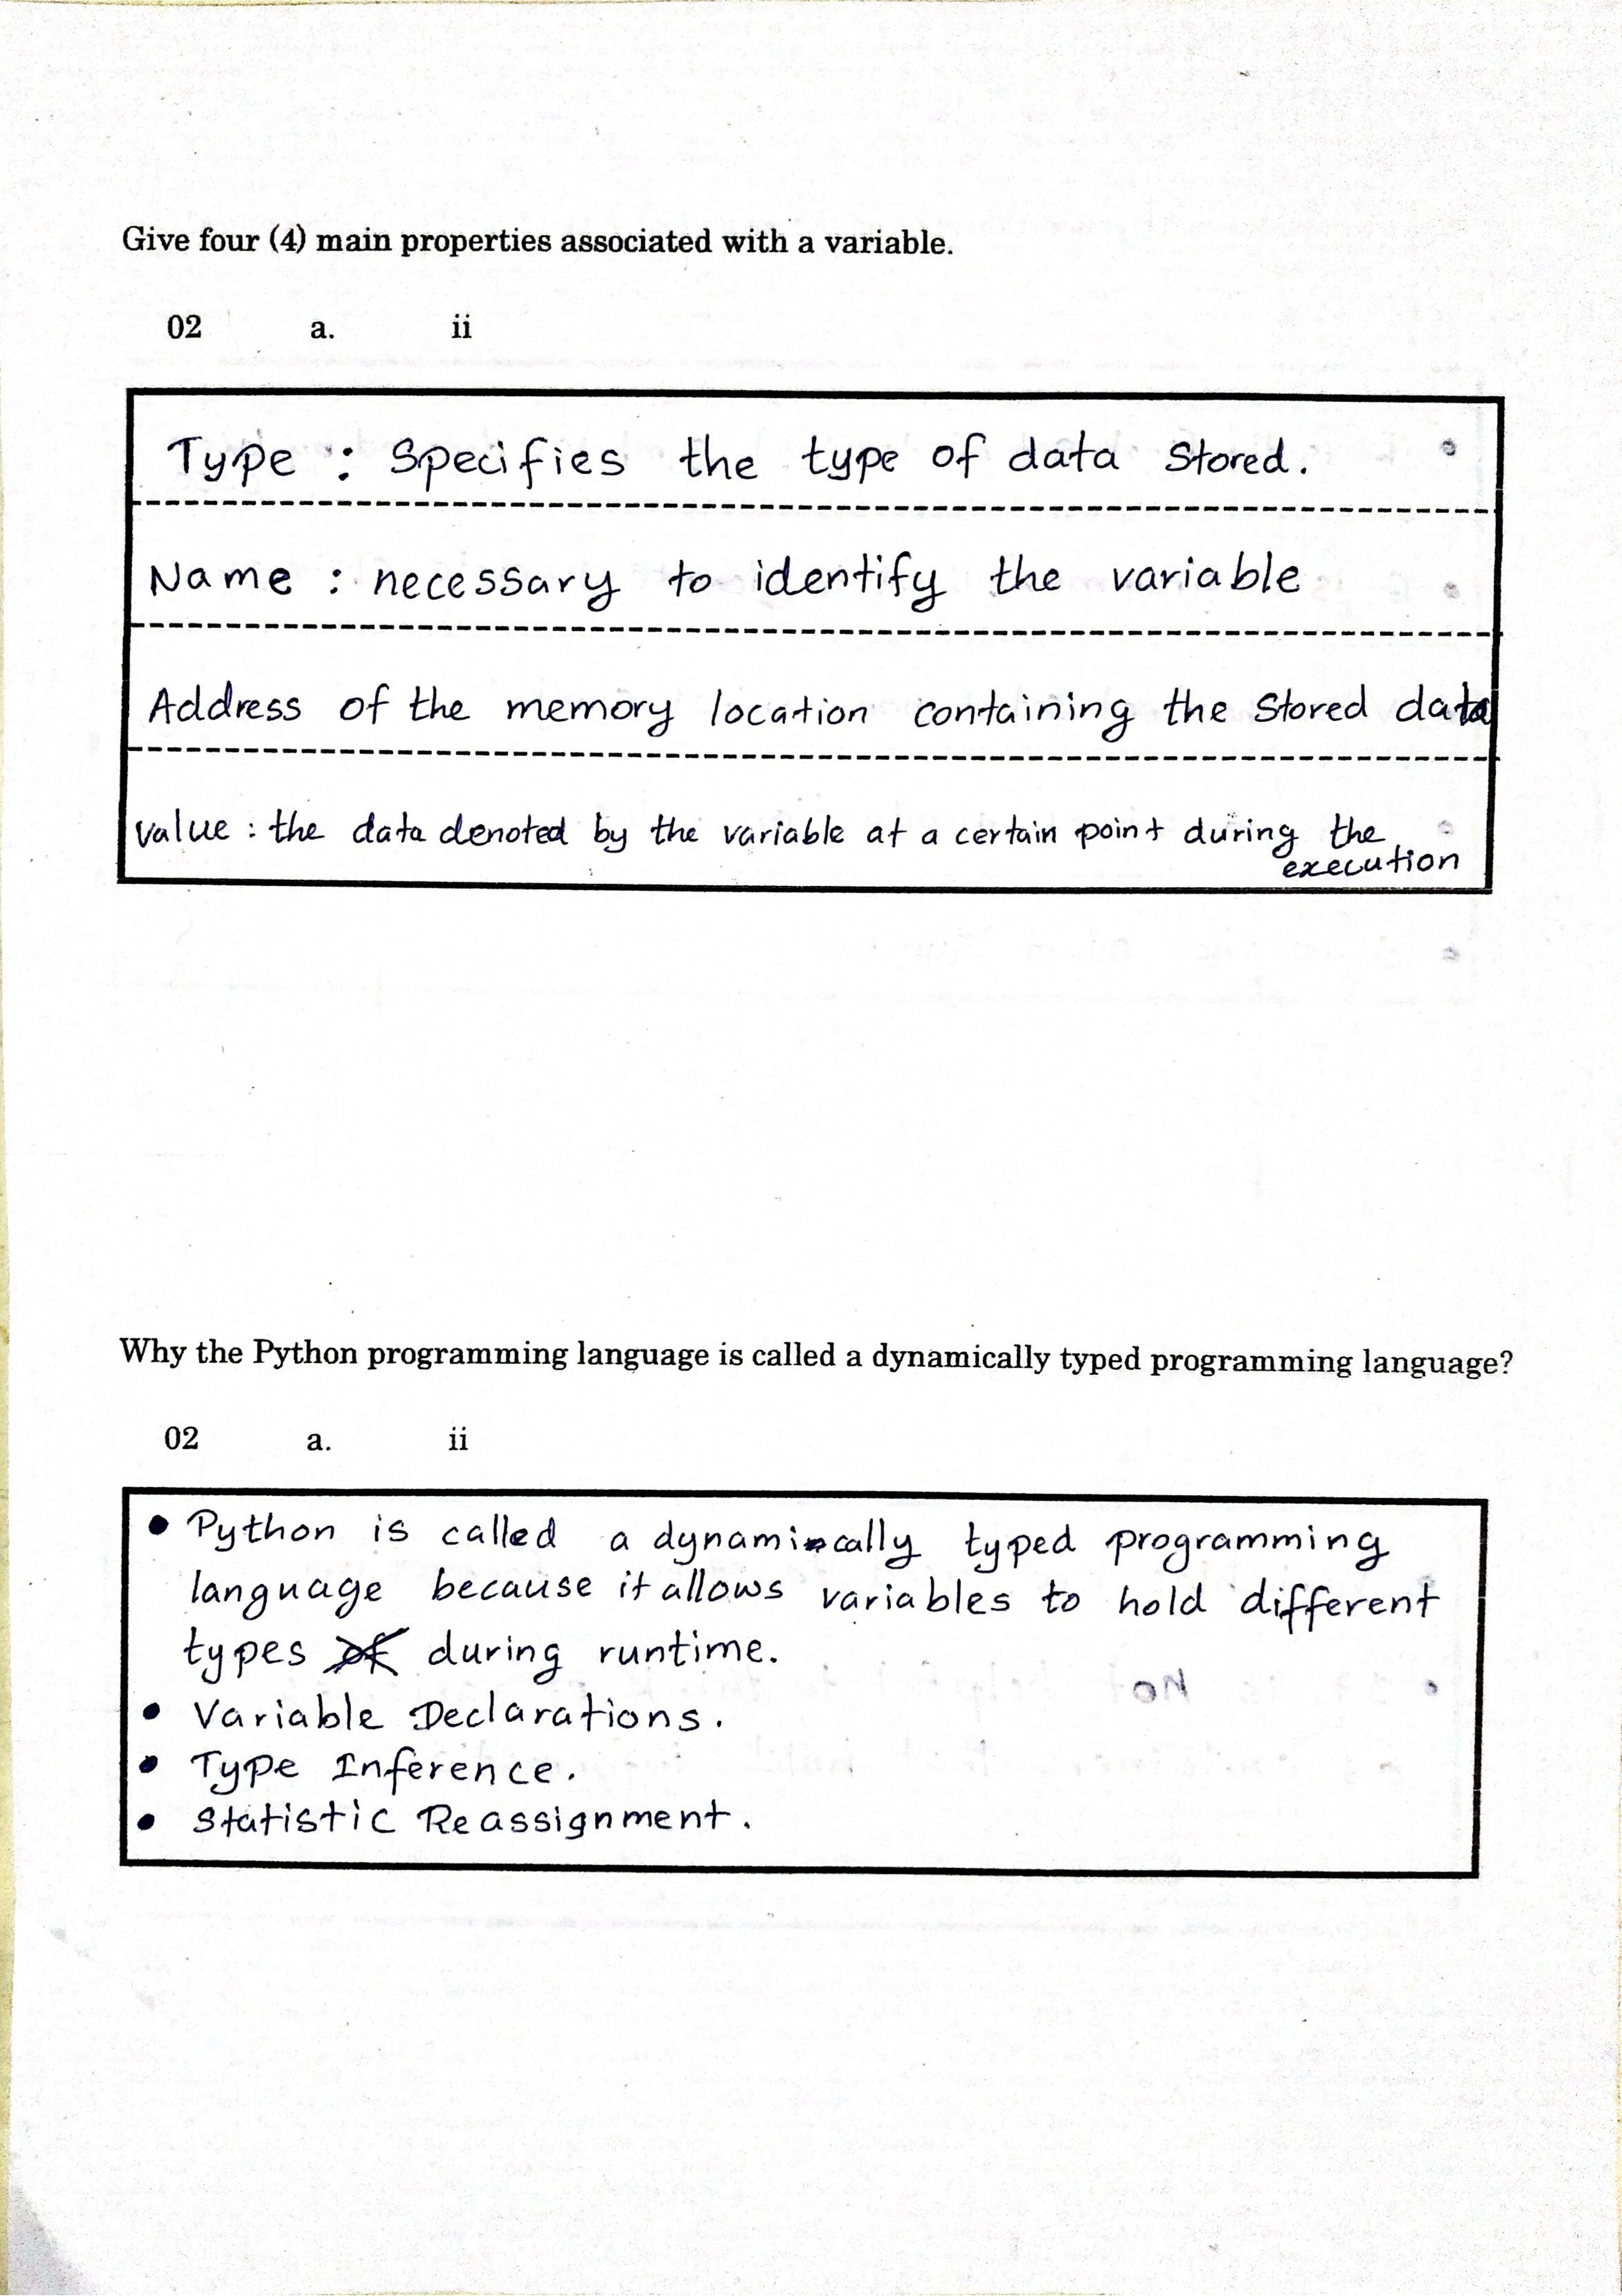 Give four (4) main properties associated with a variable.
02 a. ii
Type : Specifies the type of data Stored.
Name : necessary to identify the variable
Address of the memory location containing the Stored data
value : the data denoted by the variable at a certain point during the
execution
Why the Python programming language is called a dynamically typed programming language?
02 a. ii
• Python is called a dynamically typed programming
language because it allows variables to hold different
types of during runtime.
• Variable Declarations.
• Type Inference.
• Statistic Reassignment.